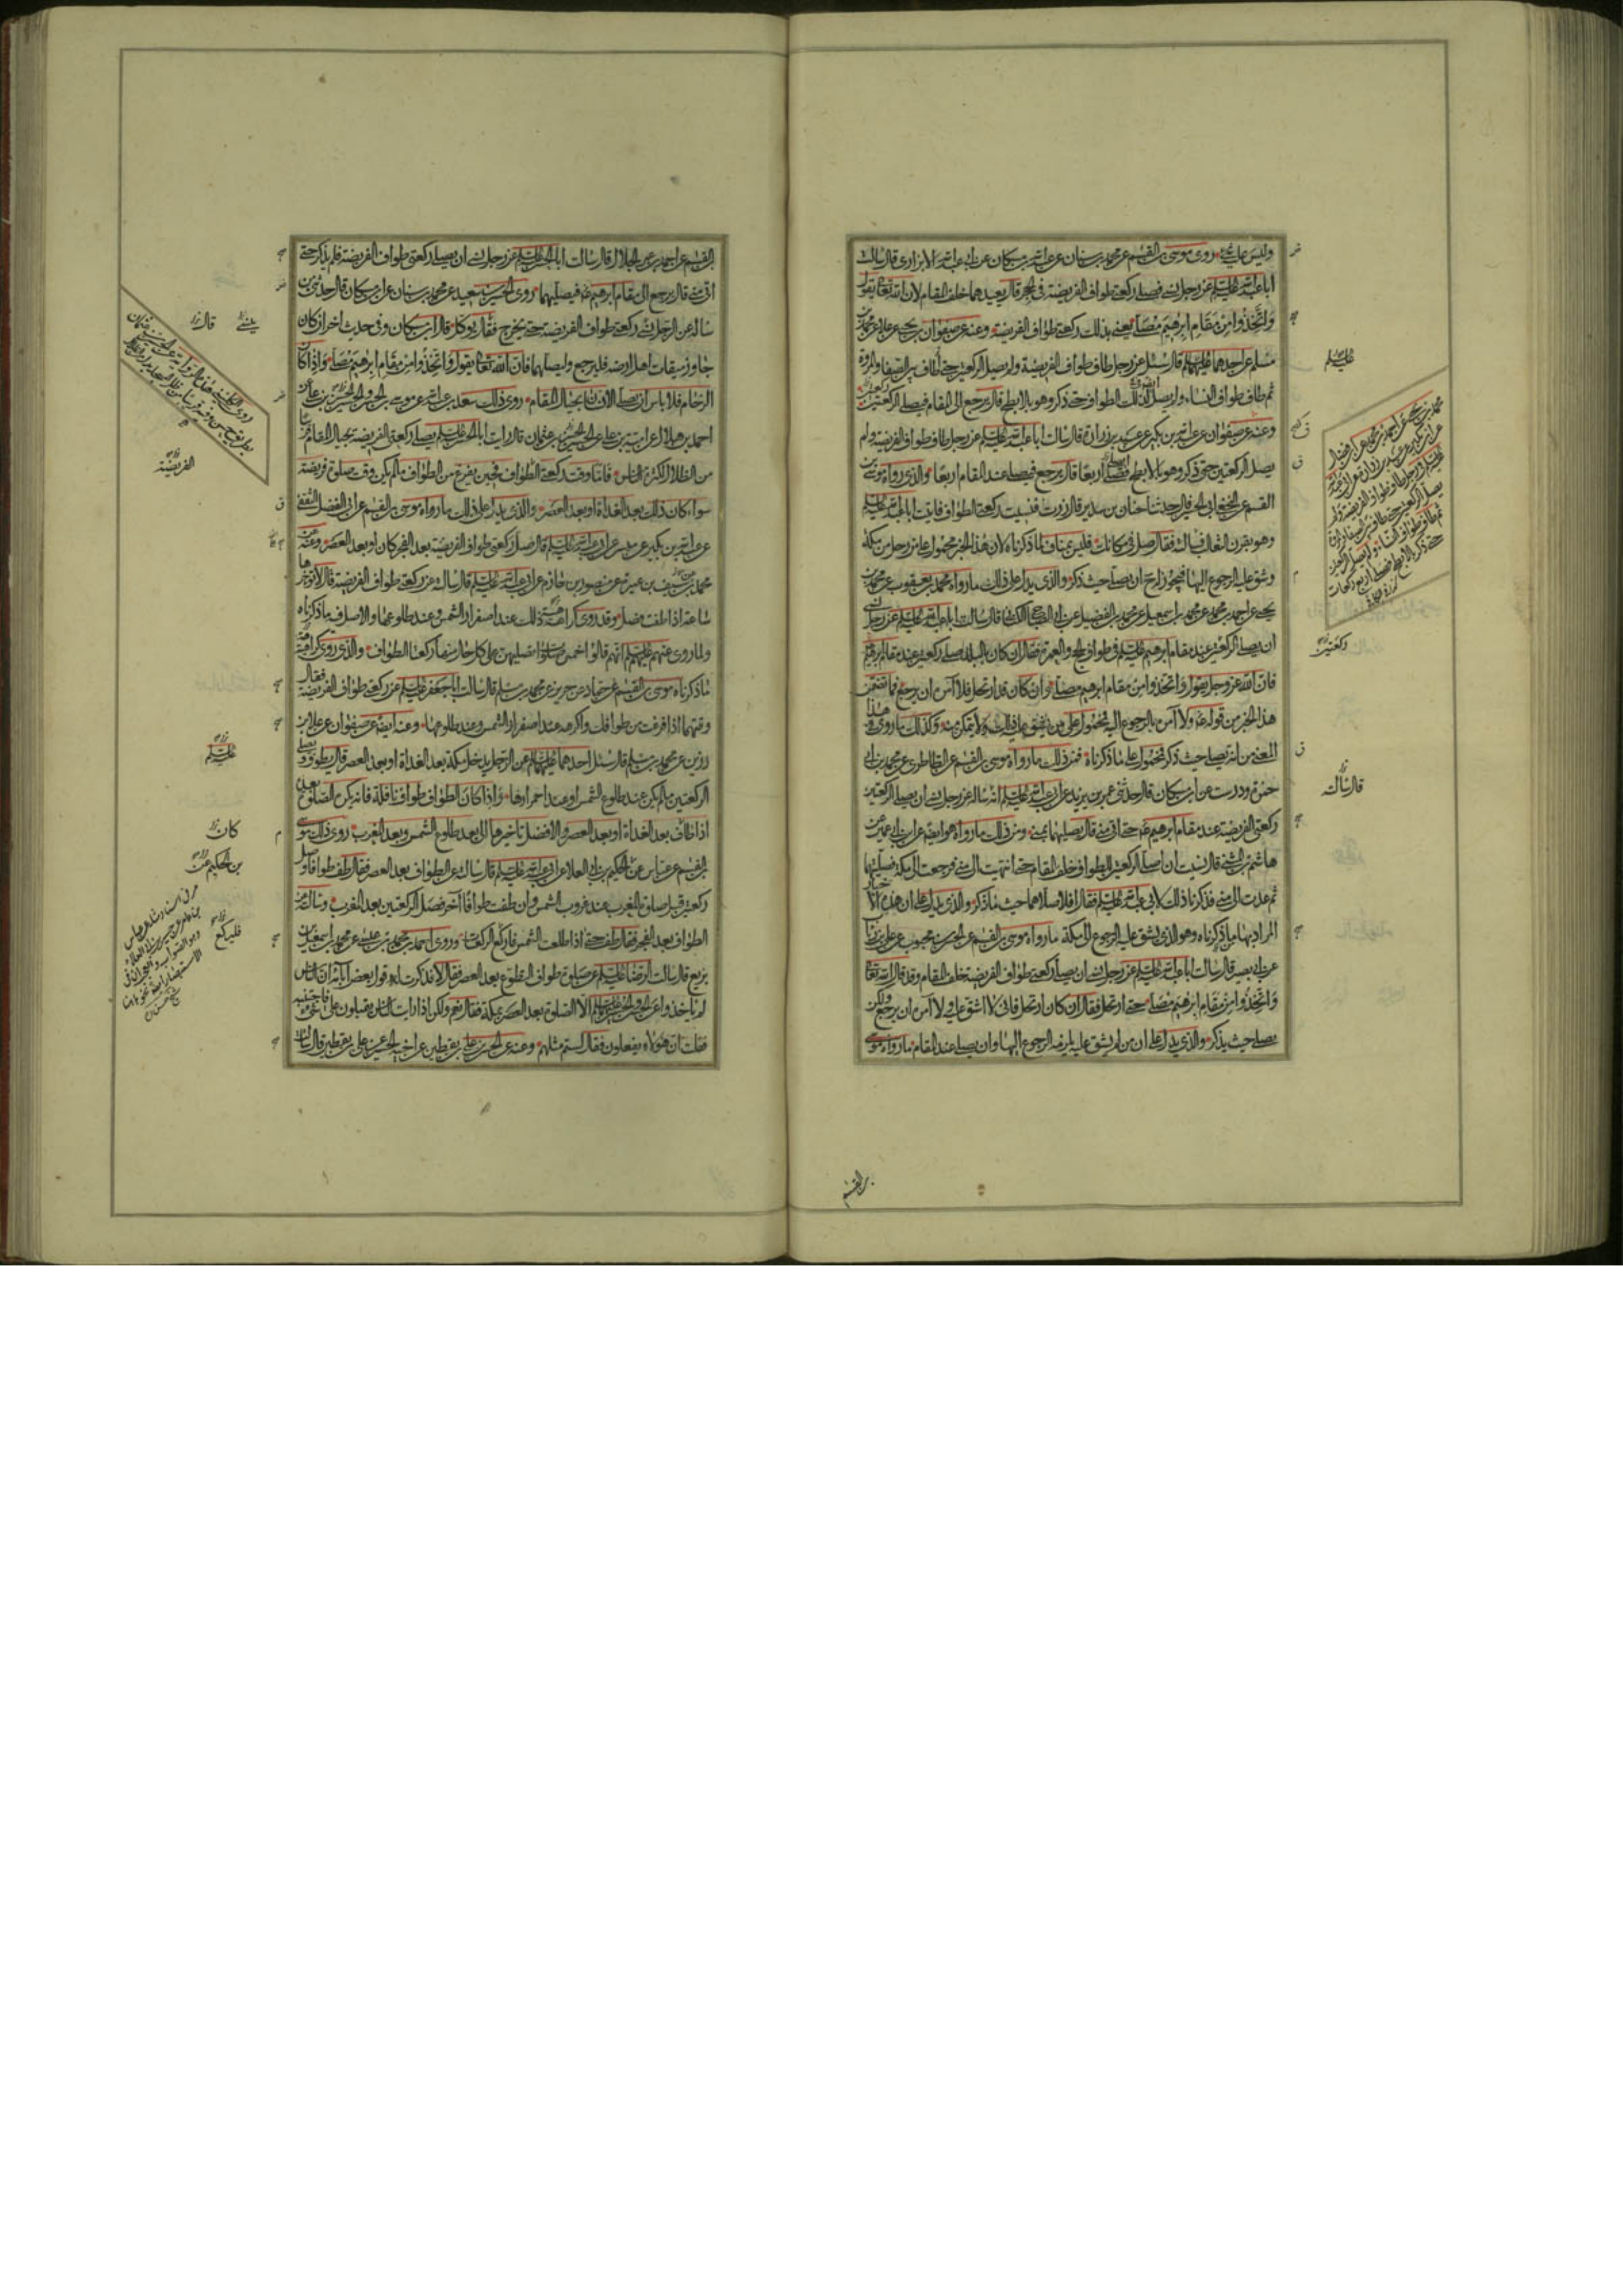 وليس عليه شيء روى موسى بن القسم عن محمد بن سنان عن عبد الله بن مسكان عن ابي عبد الله الابزاري قال سالت
ابا عبد الله عليه السلم عن رجل نسي فصلى ركعتي طواف الفريضة في الحجر قال يعيدهما خلف المقام لان الله تعالى يقول
واتخذوا من مقام ابرهيم مصلى يعني بذلك ركعتي طواف الفريضة وعنه عن صفوان بن يحيى عن علاء عن محمد بن
مسلم عن احدهما عليهما السلم قال سئل عن رجل طاف طواف الفريضة ولم يصل الركعتين حتى طاف بين الصفا والمروة
ثم طاف طواف النساء ولم يصل لذلك الطواف حتى ذكر وهو بالابطح قال يرجع الى المقام فيصلي الركعتين
وعنه عن صفوان عن عبد الله بن بكير عن عبيد بن زرارة قال سالت ابا عبد الله عليه السلم عن رجل طاف طواف الفريضة ولم
يصل الركعتين حتى ذكر وهو بالابطح فصلى اربعا قال يرجع فيصلي عند المقام اربعا والذي رواه موسى بن
القسم عن النخعي ابي الحسين قال حدثنا حنان بن سدير قال زرت فنسيت ركعتي الطواف فاتيت ابا عبد الله عليه السلم
وهو بقرن الثعالب فسالته فقال صل في مكانك فليس بمناف لما ذكرناه لان هذا الخبر محمول على من رحل من مكة
وشق عليه الرجوع اليها فيجوز له ح ان يصلي حيث ذكر والذي يدل على ذلك ما رواه محمد بن يعقوب عن محمد بن
يحيى عن احمد بن محمد عن محمد بن اسمعيل عن محمد بن الفضيل عن ابي الصباح الكناني قال سالت ابا عبد الله عليه السلم عن رجل نسي
ان يصلي الركعتين عند مقام ابرهيم عليه السلم في طواف الحج والعمرة فقال ان كان بالبلد صلى ركعتين عند مقام ابرهيم
فان الله عز وجل يقول واتخذوا من مقام ابرهيم مصلى وان كان قد ارتحل فلا آمره ان يرجع فما تضمن
هذا الخبر من قوله ولا آمره بالرجوع اليه محمول على من يشق عليه ذلك ولا يتمكن منه وكذلك ما روي في هذا
المعنى من انه يصلي حيث ذكر محمول على ما ذكرناه فمن ذلك ما رواه موسى بن القسم عن الطاطري عن محمد بن ابي
حمزة ودرست عن ابن مسكان قال حدثني عمر بن يزيد عن ابي عبد الله عليه السلم انه ساله عن رجل نسي ان يصلي الركعتين
ركعتي الفريضة عند مقام ابرهيم حتى اتى منى قال يصليهما بمنى ومن ذلك ما رواه هو ايضا عن ابن ابي عمير عن
هاشم بن المثنى قال نسيت ان اصلي الركعتين للطواف خلف المقام حتى انتهيت الى منى فرجعت الى مكة فصليتهما
ثم عدت الى منى فذكرنا ذلك لابي عبد الله عليه السلم فقال افلا صلاهما حيث ما ذكر والذي يدل على ان هذه الاخبار
المراد بها ما ذكرناه وهو الذي يشق عليه الرجوع الى مكة ما رواه موسى بن القسم عن الحسن بن محبوب عن علي بن رئاب
عن ابي بصير قال سالت ابا عبد الله عليه السلم عن رجل نسي ان يصلي ركعتي طواف الفريضة خلف المقام وقد قال الله تعالى
واتخذوا من مقام ابرهيم مصلى حتى ارتحل فقال ان كان ارتحل فاني لا اشق عليه ولا آمره ان يرجع ولكن
يصلي حيث يذكر والذي يدل على ان من لم يشق عليه يلزمه الرجوع اليها وان يصلي عند المقام ما رواه موسى
عليه السلم
ركعتين
قال سالته
بن القسم
بن القسم عن احمد بن عمر الحلال قال سالت ابا الحسن عليه السلم عن رجل نسي ان يصلي ركعتي طواف الفريضة فلم يذكر حتى
اتى منى قال يرجع الى مقام ابرهيم فيصليهما روى الحسين بن سعيد عن محمد بن سنان عن ابن مسكان قال حدثني من
ساله عن الرجل ينسى ركعتي طواف الفريضة حتى يخرج فقال يوكل قال ابن مسكان وفي حديث اخر ان كان
جاوز ميقات اهل ارضه فليرجع وليصلهما فان الله تعالى يقول واتخذوا من مقام ابرهيم مصلى واذا كان
الزحام فلا باس ان يصلي الانسان بحيال المقام روى ذلك سعد بن عبد الله عن موسى بن الحسن والحسن بن علي عن
احمد بن هلال عن امية بن علي عن الحسين بن عثمان قال رايت ابا الحسن عليه السلم يصلي ركعتي الفريضة بحيال المقام قريبا
من الظلال لكثرة الناس فاما وقت ركعتي الطواف فحين يفرغ من الطواف ما لم يكن وقت صلوة فريضة
سواء كان ذلك بعد الغداة او بعد العصر والذي يدل على ذلك ما رواه موسى بن القسم عن ابي الفضل الثقفي
عن عبد الله بن بكير عن ميسر عن ابي عبد الله عليه السلم قال صل ركعتي طواف الفريضة بعد الفجر كان او بعد العصر وعنه عن
محمد بن سيف بن عميرة عن منصور بن حازم عن ابي عبد الله عليه السلم قال سالته عن ركعتي طواف الفريضة قال لا تؤخرها
ساعة اذا طفت فصل وقد روي كراهية ذلك عند اصفرار الشمس وعند طلوعها والاصل فيه ما ذكرناه
ولما روي عنهم عليهم السلم انهم قالوا خمس صلوات تصليهن على كل حال منها ركعتا الطواف والذي روى كراهية
ما ذكرناه موسى بن القسم عن حماد عن حريز عن محمد بن مسلم قال سالت ابا جعفر عليه السلم عن ركعتي طواف الفريضة فقال
وقتهما اذا فرغت من طوافك واكرهه عند اصفرار الشمس وعند طلوعها وعنه ايضا عن صفوان عن علاء بن
رزين عن محمد بن مسلم قال سئل احدهما عليهما السلم عن الرجل يدخل مكة بعد الغداة او بعد العصر قال يطوف ويصلي
الركعتين ما لم يكن عند طلوع الشمس او عند احمرارها واذا كان الطواف طواف نافلة فانه يكره الصلوة بعده
اذا طاف بعد الغداة او بعد العصر والافضل تاخيرها الى بعد طلوع الشمس وبعد المغرب روى ذلك موسى
بن القسم عن عباس عن حكيم بن ابي العلاء عن ابي عبد الله عليه السلم قال سالته عن الطواف بعد العصر فقال طف طوافا وصل
ركعتين قبل صلوة المغرب عند غروب الشمس وان طفت طوافا آخر فصل الركعتين بعد المغرب وسالته عن
الطواف بعد الفجر فقال طف حتى اذا طلعت الشمس فاركع الركعات وروى احمد بن محمد بن عيسى عن محمد بن اسمعيل بن
بزيع قال سالت الرضا عليه السلم عن صلوة طواف التطوع بعد العصر فقال لا فذكرت له قول بعض آبائه ان الناس
لم ياخذوا عن الحسن والحسين عليهما السلم الا الصلوة بعد العصر بمكة فقال نعم ولكن اذا رايت الناس يقبلون على شيء فاجتنبه
فقلت ان هؤلاء يفعلون فقال لستم مثلهم وعنه عن الحسن بن علي بن يقطين عن اخيه الحسين عن علي بن يقطين قال سالت
ينسى
قال
الفريضة
عليه السلم
كان
بن الحكيم عن
فليركع